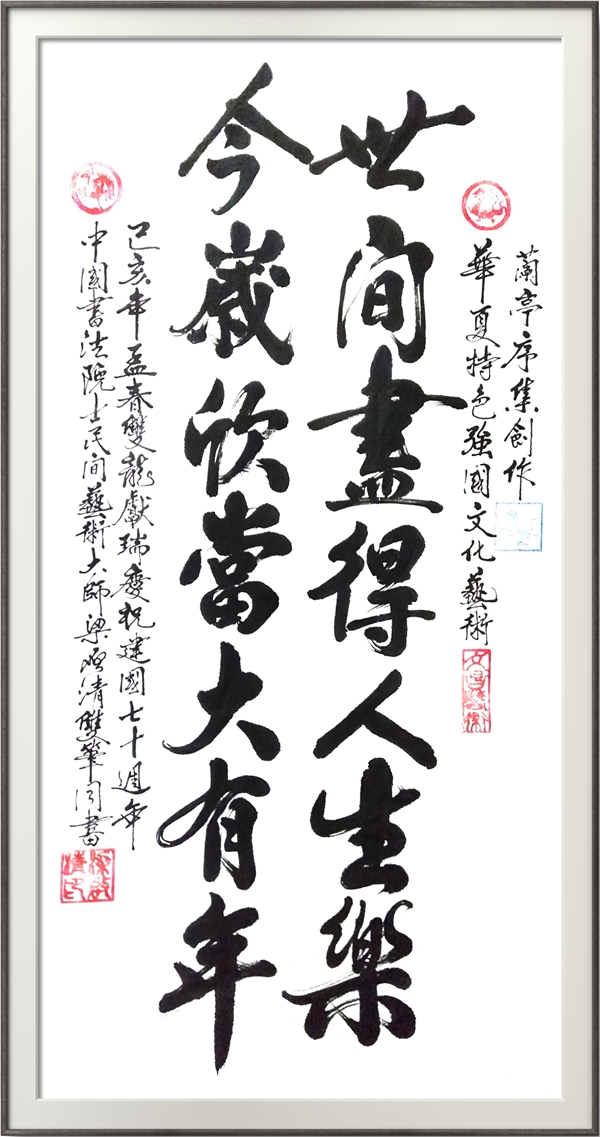 蘭亭序集創作
華夏特色強國文化藝術
世间盡得人生樂
今嵗欣當大有年
己亥年孟春雙龍獻瑞慶祝建國七十週年
中國書法院士民间藝術大師梁啓清雙筆同書